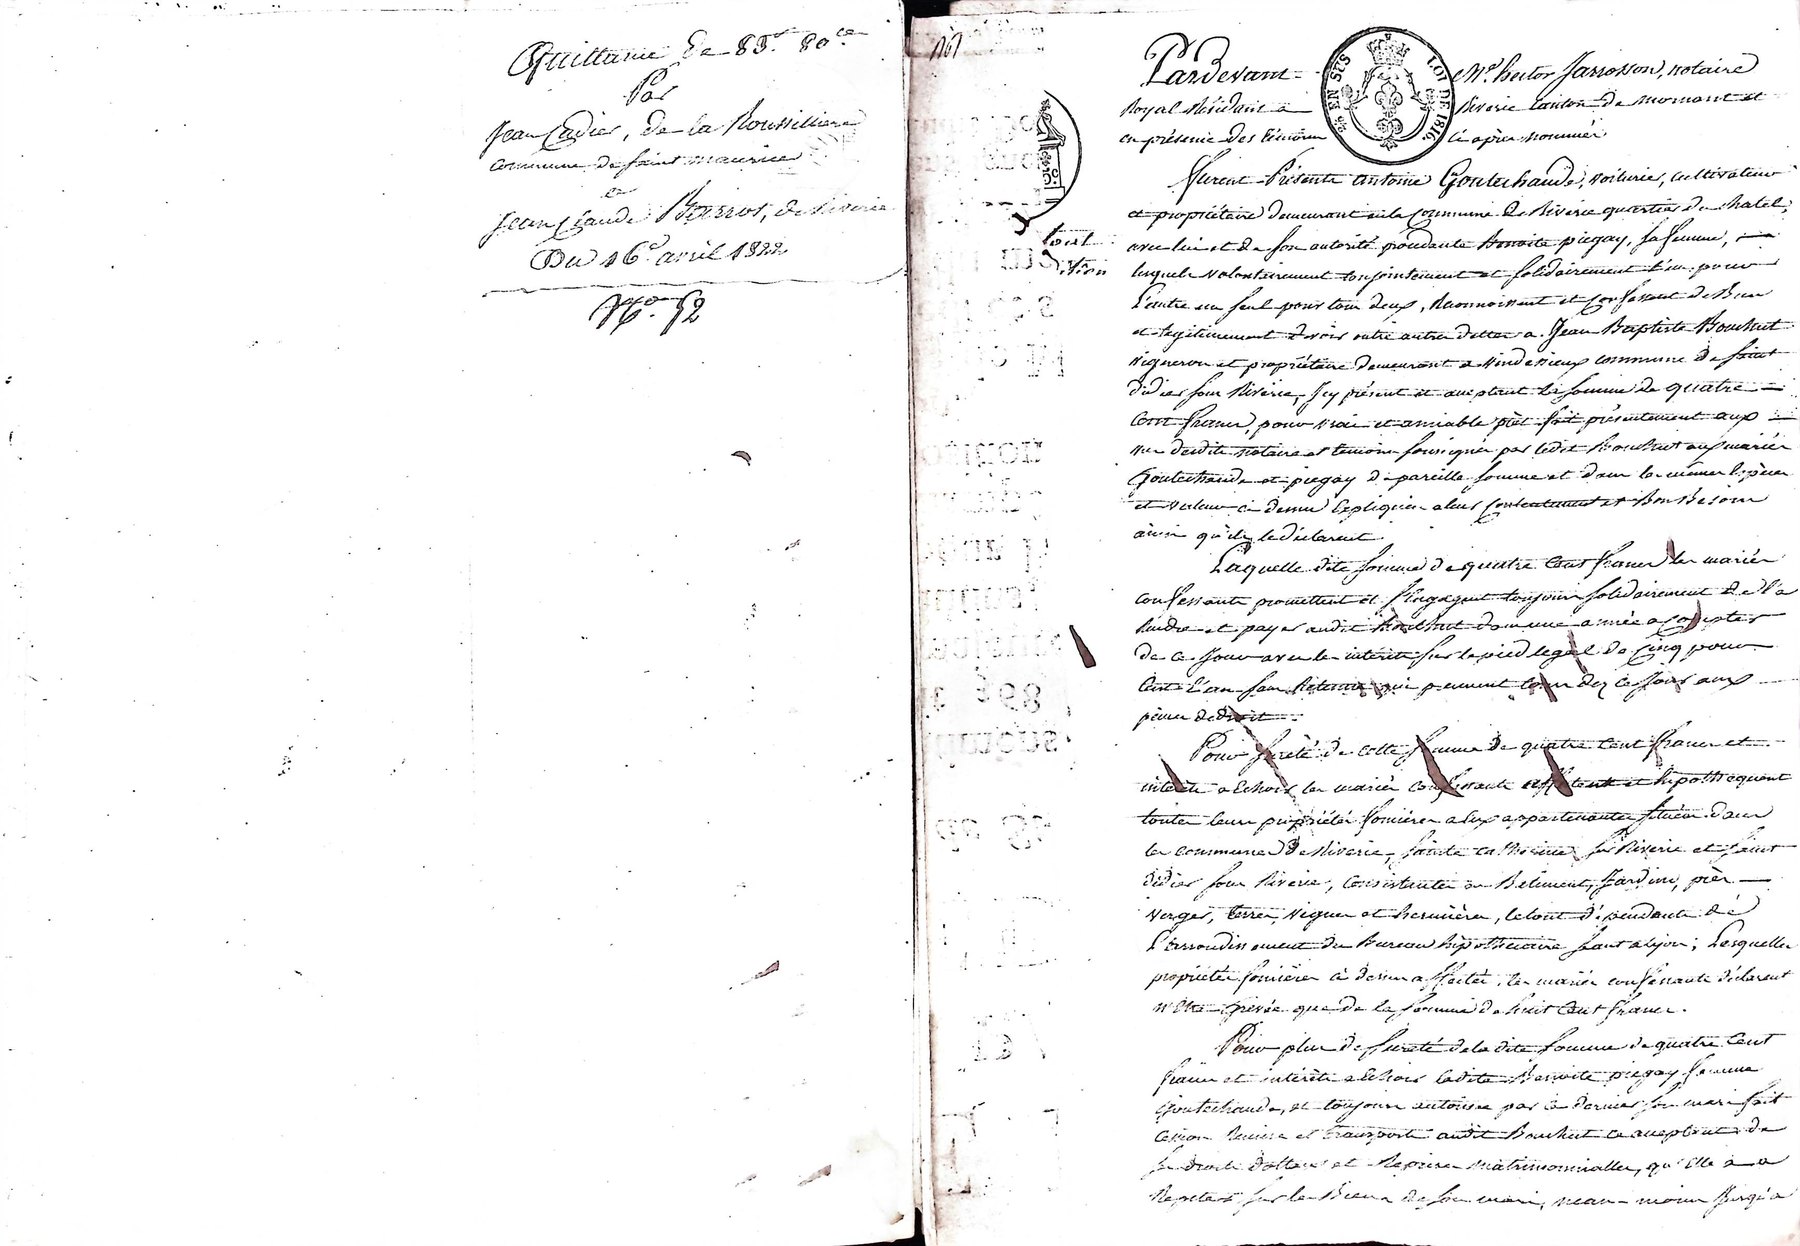 Quittance de 83.f 80.ce
Par
Jean Cadier, de la Roussilliere
Commune de Saint maurice
a
Jean Claude Bonnot, de Riverie
Du 16.e avril 1822
N.o 52
Pardevant M.e hector Jarrosson, notaire
EN SUS LOI DE 1816
Royal Résidant a Riverie Canton de mornant et
en présence des témoins cí après nommés
tout
Furent Présents antoine Goutechaude, voiturier, cultivateur
et propriétaire demeurant en la Commune de Riverie quartier du Chatel,
avec lui et de son autorité procédante Benoite piegay, sa femme,
lesquels volontairement conjointement et solidairement l'un pour
L'autre un seul pour tous deux, Reconnoissent et Confessent de Bien
et légitimement devoir outre autres dettes a Jean Baptiste Bouchut
vigneron et propriétaire demeurant a commune de Saint
didier sous Riverie, Icy présent et acceptant la somme de quatre
Cent francs, pour vrai et amiable prêt fait présentement aux
vus desdits notaire et témoins soussignés par ledit Bouchut aux mariés
Goutechaude et piegay de pareille somme et dans les mêmes Espèces
et valeur ci dessus Expliquées a leur Contentement et Bon Besoin
ainsi qu'ils le déclarent
Laquelle dite somme de quatre Cent francs les mariés
Confessants promettent et s'Engagent toujours solidairement de la
Rendre et payer audit Bouchut dans une année a Compter
de ce Jour avec les intérêts sur le pied légal de Cinq pour
Cent L'an sans Retenue qui prennent cours dez ce Jour aux
peines de droit
Pour sureté de cette somme de quatre Cent francs et
intérêts a Echoir les mariés confessants affectent et hipothequent
toutes leurs propriétés foncières a Eux appartenantes situées dans
les communes de Riverie, sainte catherine sur Riverie et saint
didier sous Riverie, Consistantes en Batiment, Jardin, près
verger, terres, vignes et hermières, le tout dépendants de
L'arrondissement du Bureau hipothecaire séant a Lyon; Lesquelles
propriétés foncières ci dessus affectés, les mariés confessants déclarent
n'être grevée que de la somme de huit Cent francs.
Pour plus de sureté de la dite somme de quatre Cent
francs et intérêts a Echoir ladite Benoite piegay femme
Goutechaude, et toujours autorisée par ce dernier son mari fait
Cession Remise et transports audit Bouchut ce acceptant de
ses droits dottaux et Reprises matrimonialles, qu'elle a a
Repeter sur les Biens de son mari, neanmoins Jusqu'a